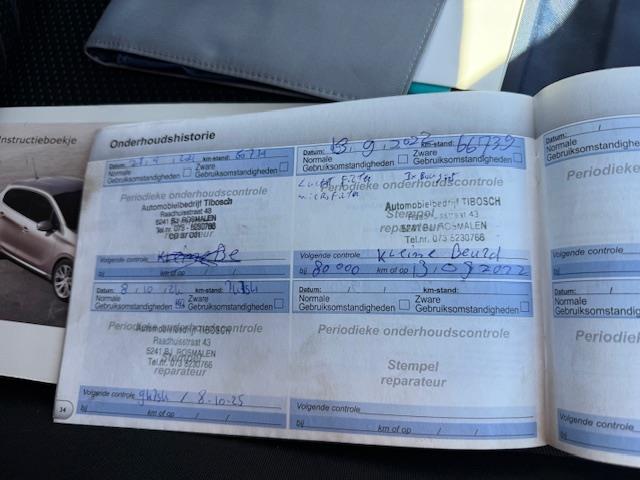 Instructieboekje
Onderhoudshistorie
Datum: km-stand:
Normale Gebruiksomstandigheden Zware Gebruiksomstandigheden
Periodieke onderhoudscontrole
Automobielbedrijf Tibosch
Raadhuisstraat 43
5241 BJ ROSMALEN
Tel.nr. 073-5230766
Volgende controle
bij km of op / /
Datum: 13.9.2023 km-stand: 66739
Normale Gebruiksomstandigheden Zware Gebruiksomstandigheden
Periodieke onderhoudscontrole
Automobielbedrijf TIBOSCH
Stempel
Raadhuisstraat 43
reparateur
5241 BJ ROSMALEN
Tel.nr. 073 5230766
Volgende controle Kleine Beurd
bij 80 000 km of op
Datum: 8.10.24 km-stand:
Normale Gebruiksomstandigheden Zware Gebruiksomstandigheden
Periodieke onderhoudscontrole
Automobielbedrijf TIBOSCH
Raadhuisstraat 43
5241 BJ ROSMALEN
Stempel
Tel.nr. 073 5230766
reparateur
Volgende controle 8-10-25
bij km of op / /
Datum: / / km-stand:
Normale Gebruiksomstandigheden Zware Gebruiksomstandigheden
Periodieke onderhoudscontrole
Stempel
reparateur
Volgende controle
bij km of op / /
34
Datum: /
Normale
Gebruiksomstandigh
Periodiek
Volgende controle
bij
Datum: /
Normale
Gebruiksomstandig
Periodiek
Volgende controle
bij